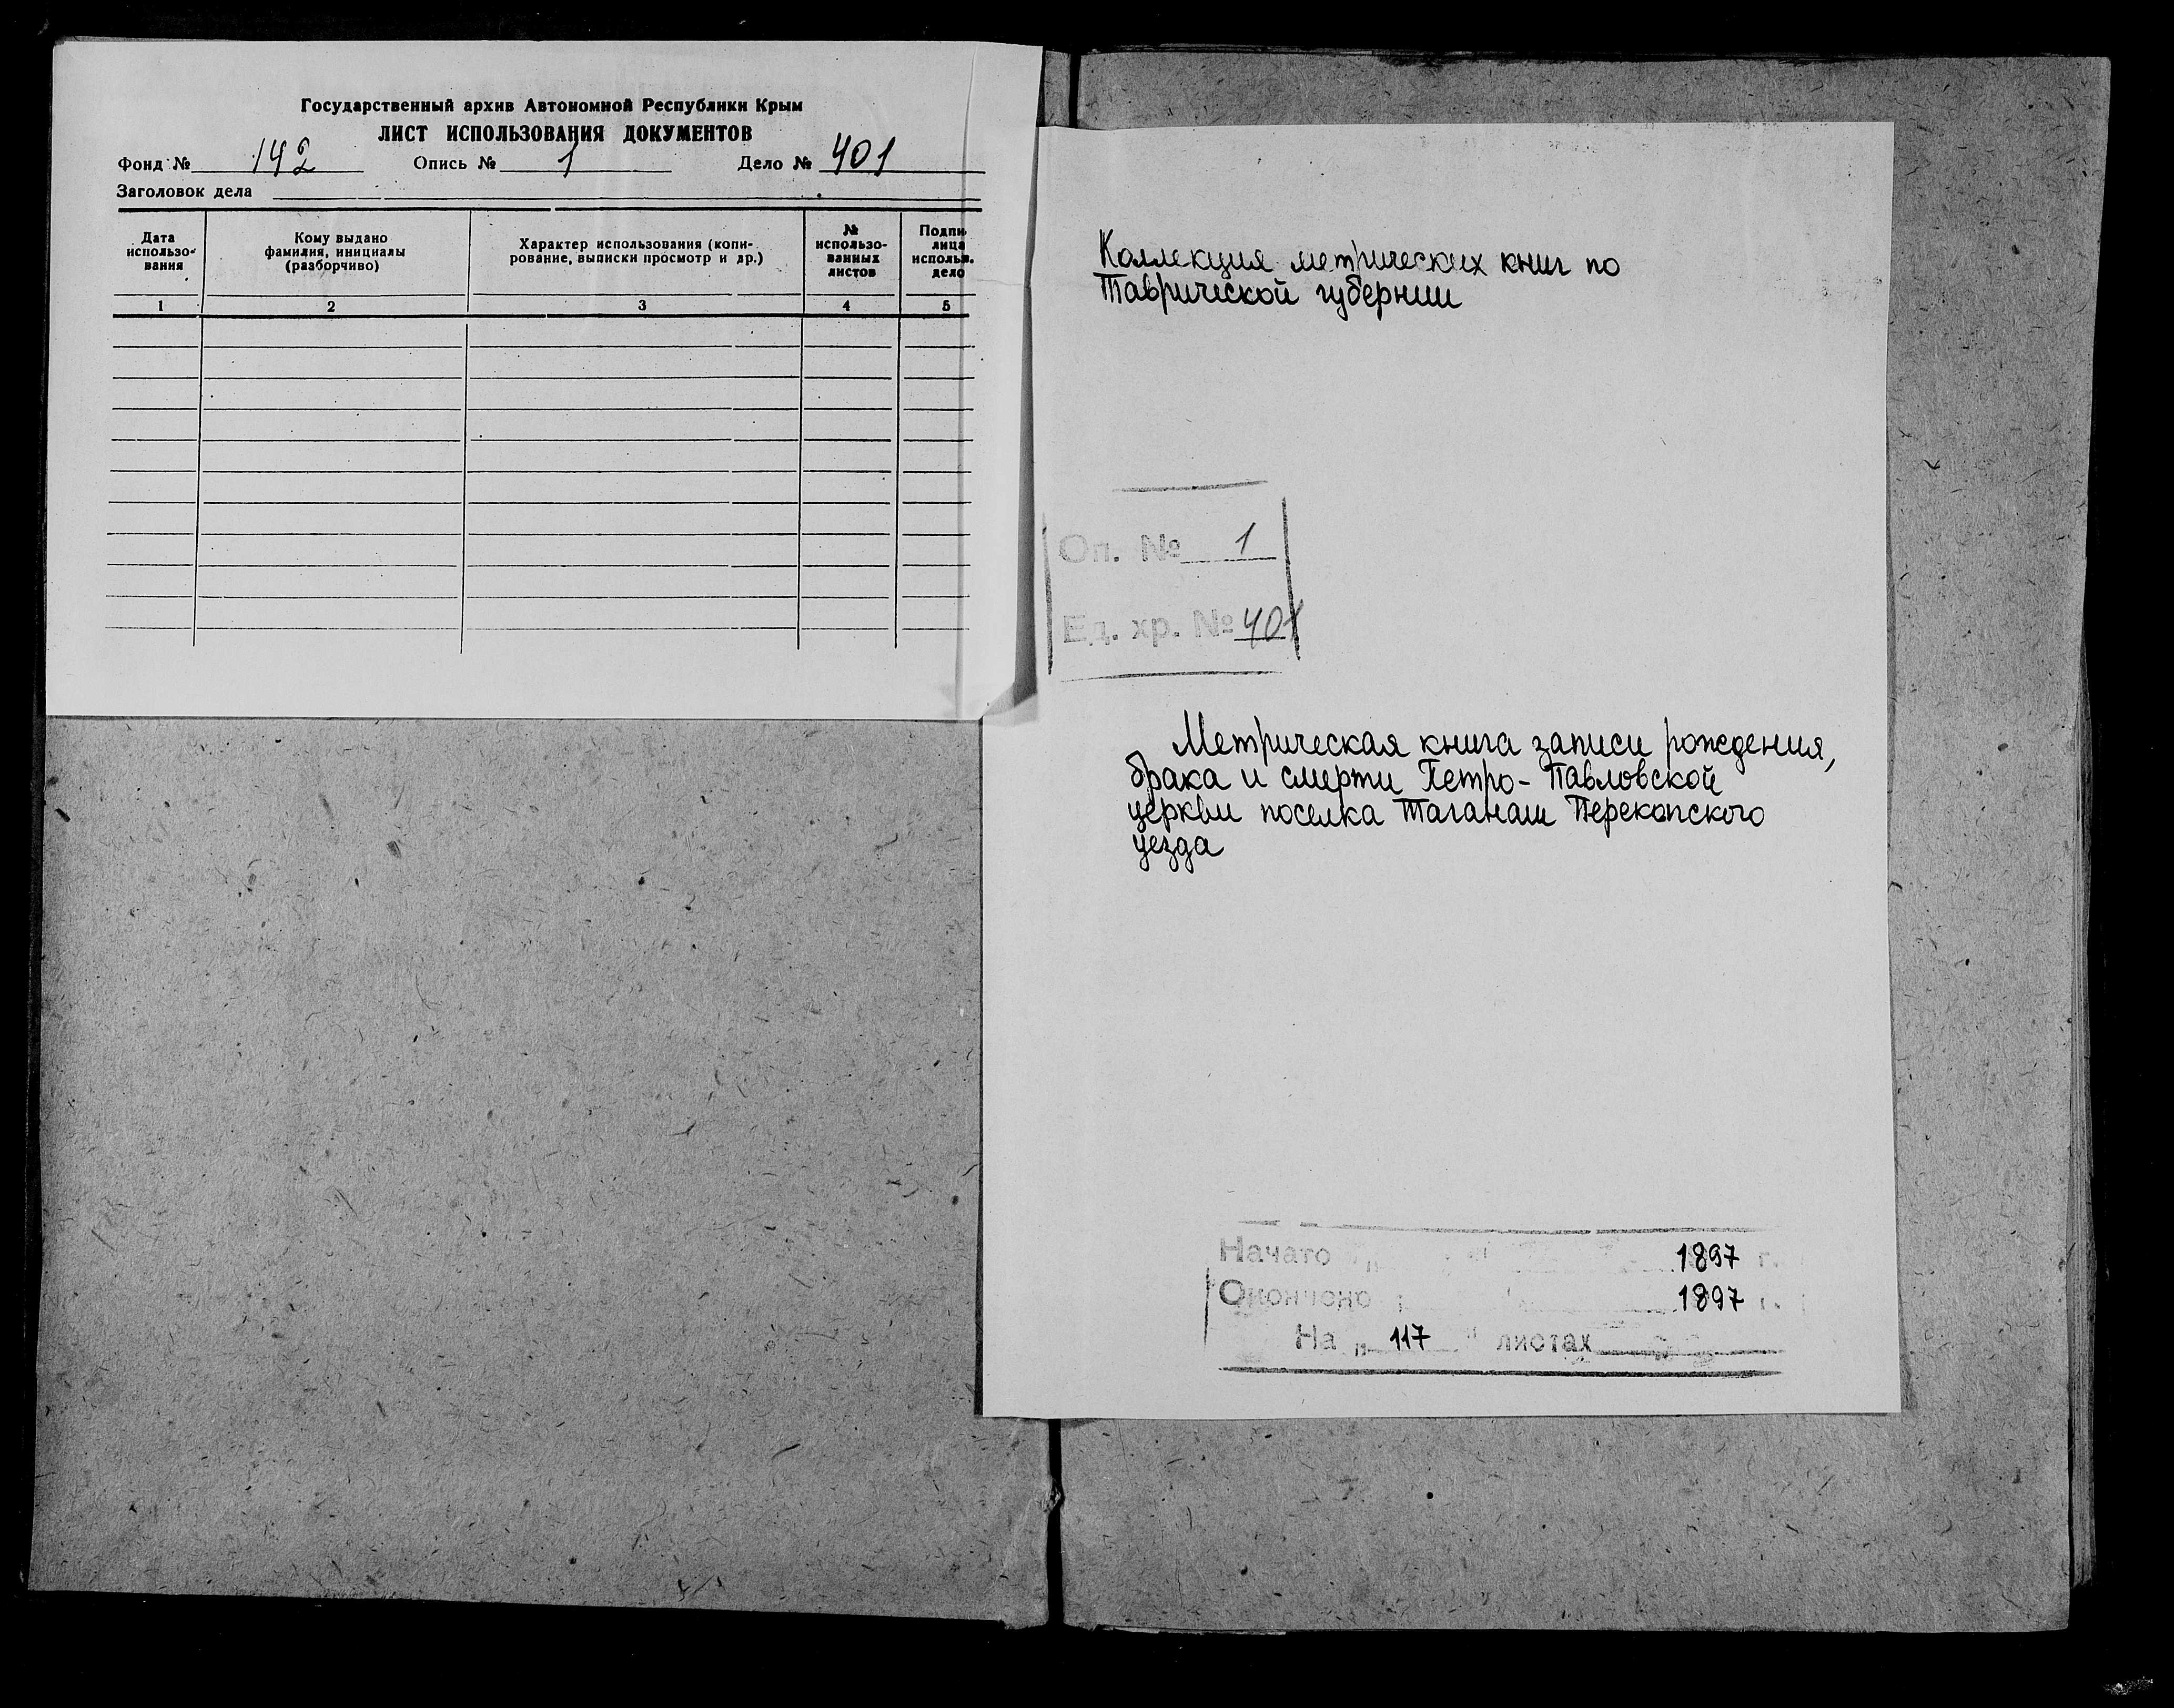 Государственный архив Автономной Республики Крым
ЛИСТ ИСПОЛЬЗОВАНИЯ ДОКУМЕНТОВ
Фонд № 142 Опись № 1 Дело № 401
Заголовок дела
Дата
использо-
вания
Кому выдано
фамилия, инициалы
(разборчиво)
Характер использования (копи-
рование, выписки просмотр и др.)
№
использо-
ванных
листов
Подпи
лица
использ.
дело
1 2 3 4 5
Коллекция метрических книг по
Таврической губернии
Оп. № 1
Ед. хр. № 401
Метрическая книга записи рождения,
брака и смерти Петро-Павловской
церкви поселка Таганаш Перекопского
уезда
Начато " 1897 г.
Окончено 1897 г.
На „ 117 " листах